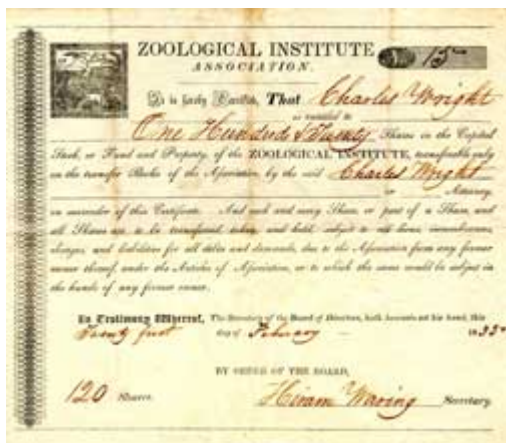 ZOOLOGICAL INSTITUTE
ASSOCIATION.
No 15
It is hereby Certified, That Charles Wright
is entitled to
One Hundred & Twenty Shares in the Capital
Stock, or Fund and Property, of the ZOOLOGICAL INSTITUTE, transferable only
on the transfer Books of the Association, by the said Charles Wright
or Attorney
on surrender of this Certificate. And each and every Share, or part of a Share, and
all Shares are to be transferred, taken and held, subject to all liens, incumbrances,
charges, and liabilities for all debts and demands, due to the Association from any former
owner thereof, under the Articles of Association, or to which the same would be subject in
the hands of any former owner.
In Testimony Whereof, The Secretary of the Board of Directors, hath hereunto set his hand, this
Twenty first day of February 1835
BY ORDER OF THE BOARD,
120 Shares. Hiram Waring Secretary.